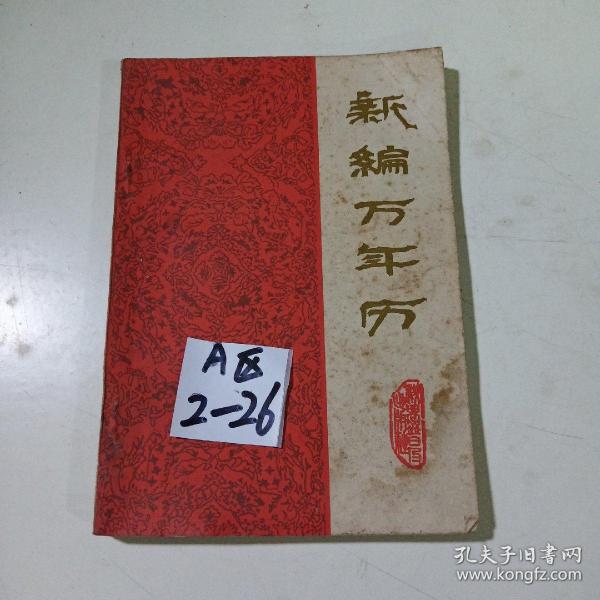 新编万年历
A区
2-26
孔夫子旧书网
www.kongfz.com